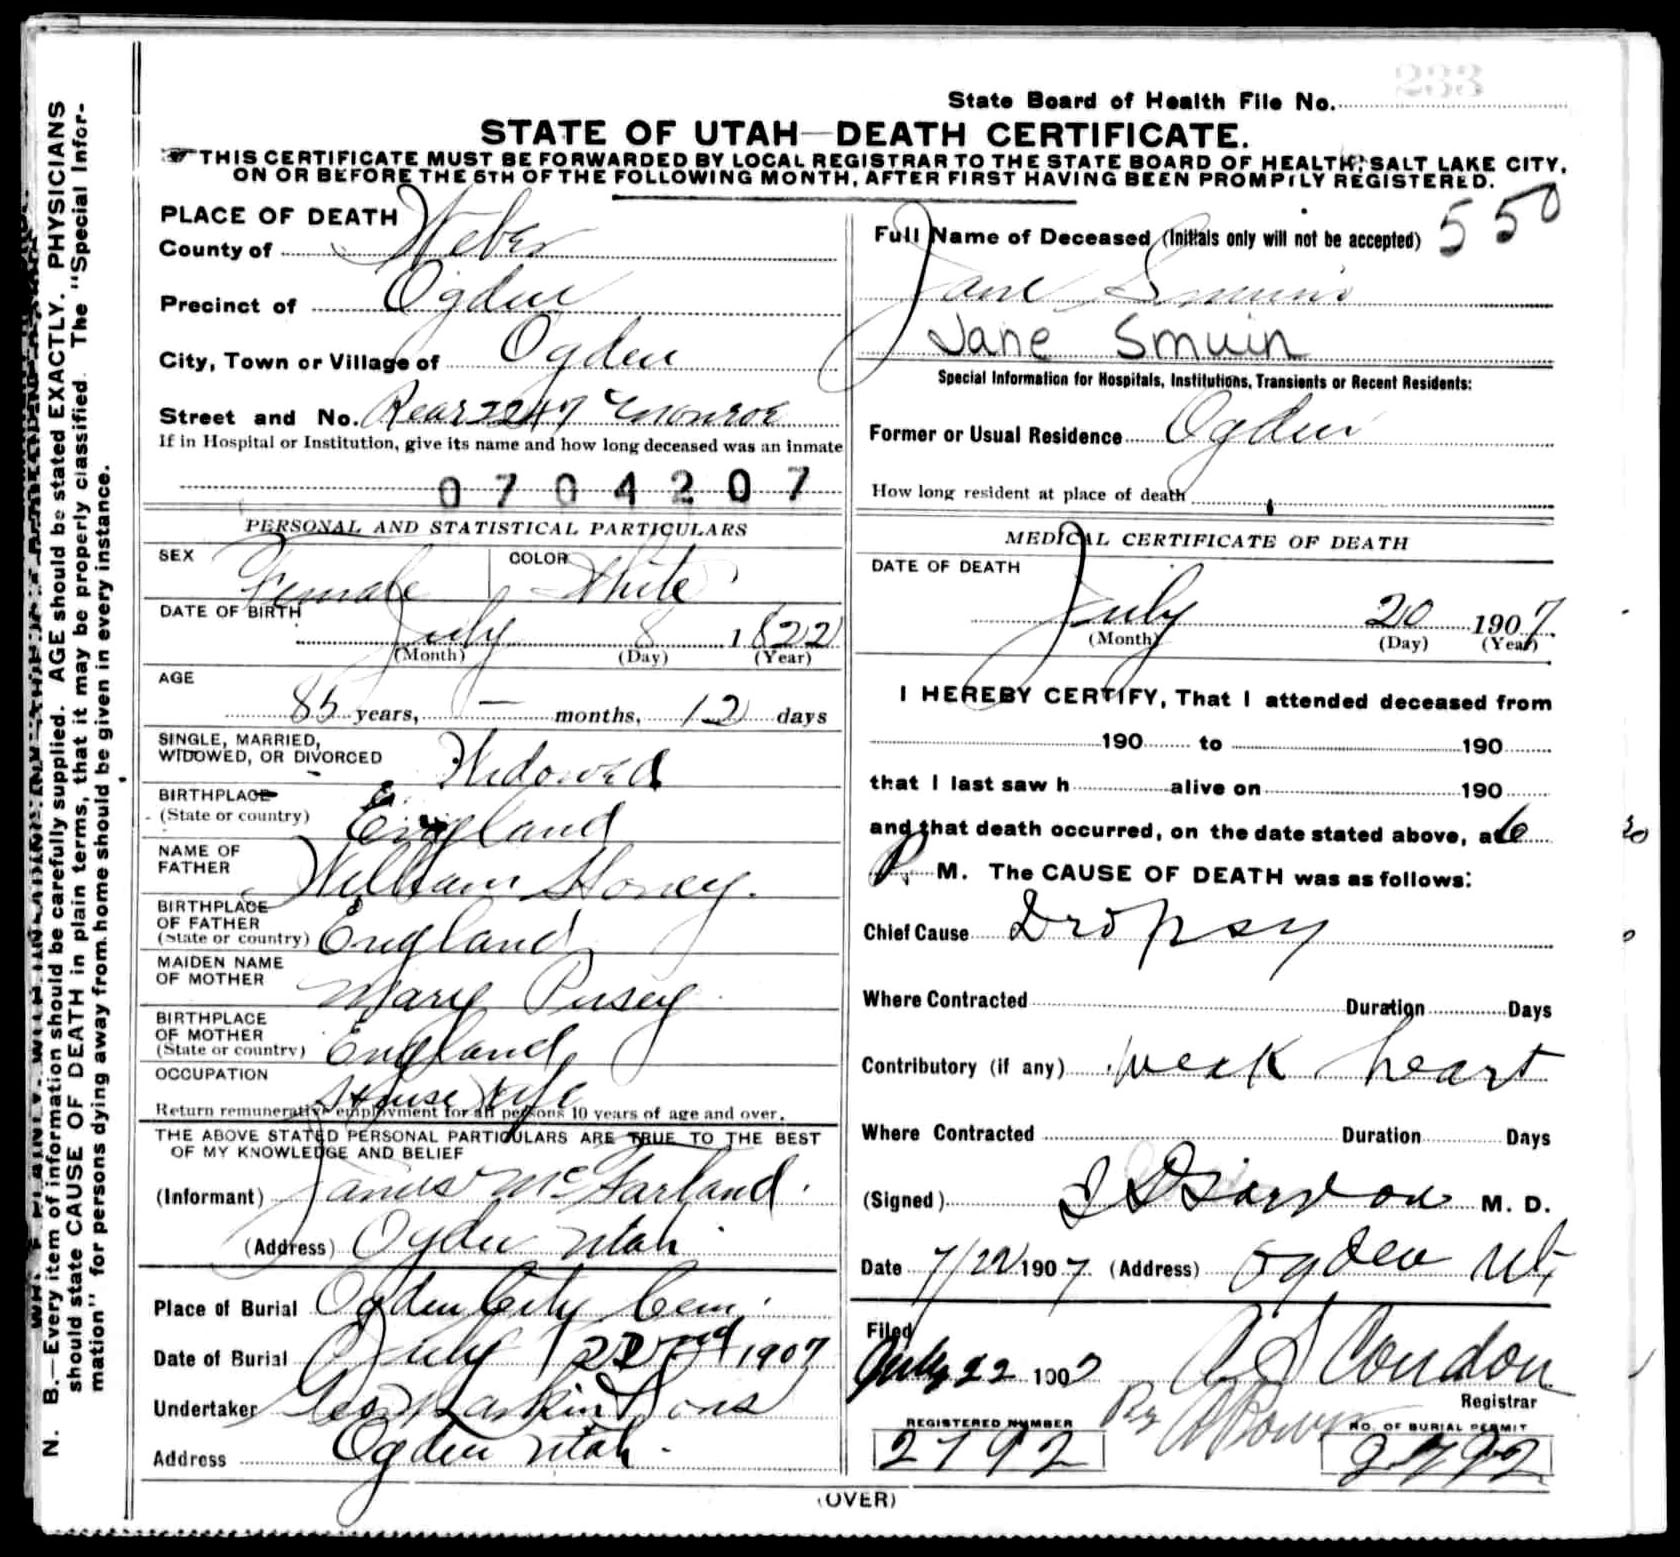 State Board of Health File No. 233
STATE OF UTAH—DEATH CERTIFICATE.
THIS CERTIFICATE MUST BE FORWARDED BY LOCAL REGISTRAR TO THE STATE BOARD OF HEALTH, SALT LAKE CITY,
ON OR BEFORE THE 5TH OF THE FOLLOWING MONTH, AFTER FIRST HAVING BEEN PROMPTLY REGISTERED.
PLACE OF DEATH
County of Weber
Precinct of Ogden
City, Town or Village of Ogden
Street and No. Rear 2247 Monroe
If in Hospital or Institution, give its name and how long deceased was an inmate
0704207
PERSONAL AND STATISTICAL PARTICULARS
SEX Female COLOR White
DATE OF BIRTH
July 8 1822
(Month) (Day) (Year)
AGE
85 years, — months, 12 days
SINGLE, MARRIED,
WIDOWED, OR DIVORCED Widowed
BIRTHPLACE
(State or country) England
NAME OF
FATHER William Honey.
BIRTHPLACE
OF FATHER
(State or country) England
MAIDEN NAME
OF MOTHER Mary Pusey
BIRTHPLACE
OF MOTHER
(State or country) England
OCCUPATION House Wife
Return remunerative employment for all persons 10 years of age and over.
THE ABOVE STATED PERSONAL PARTICULARS ARE TRUE TO THE BEST
OF MY KNOWLEDGE AND BELIEF
(Informant) James McFarland.
(Address) Ogden Utah
Place of Burial Ogden City Cem.
Date of Burial July 22nd 1907
Undertaker Geo Larkin & Sons
Address Ogden Utah.
550
Full Name of Deceased (Initials only will not be accepted)
Jane Smuin
Jane Smuin
Special Information for Hospitals, Institutions, Transients or Recent Residents:
Former or Usual Residence Ogden
How long resident at place of death
MEDICAL CERTIFICATE OF DEATH
DATE OF DEATH
July 20 1907.
(Month) (Day) (Year)
I HEREBY CERTIFY, That I attended deceased from
190 to 190
that I last saw h alive on 190
and that death occurred, on the date stated above, at 6 30
P. M. The CAUSE OF DEATH was as follows:
Chief Cause Dropsy
Where Contracted Duration Days
Contributory (if any) weak heart
Where Contracted Duration Days
(Signed) M. D.
Date 7/22 1907. (Address) Ogden Ut,
Filed
July 22 1907 Condon
Registrar
REGISTERED NUMBER
2792
NO. OF BURIAL PERMIT
2792
(OVER)
N. B.—Every item of information should be carefully supplied. AGE should be stated EXACTLY. PHYSICIANS
should state CAUSE OF DEATH in plain terms, that it may be properly classified. The "Special Infor-
mation" for persons dying away from home should be given in every instance.